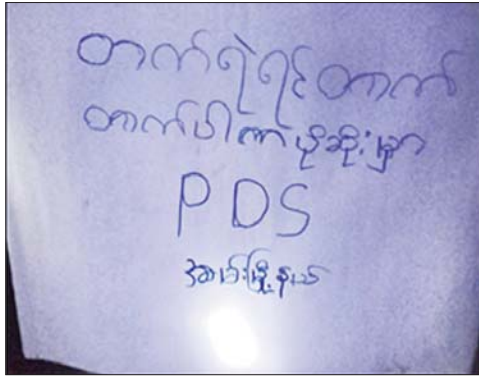 တက်ရဲရင်တက်
တက်ပါ ဖို့ဆိုးမှာ
PDS
မြို့နယ်